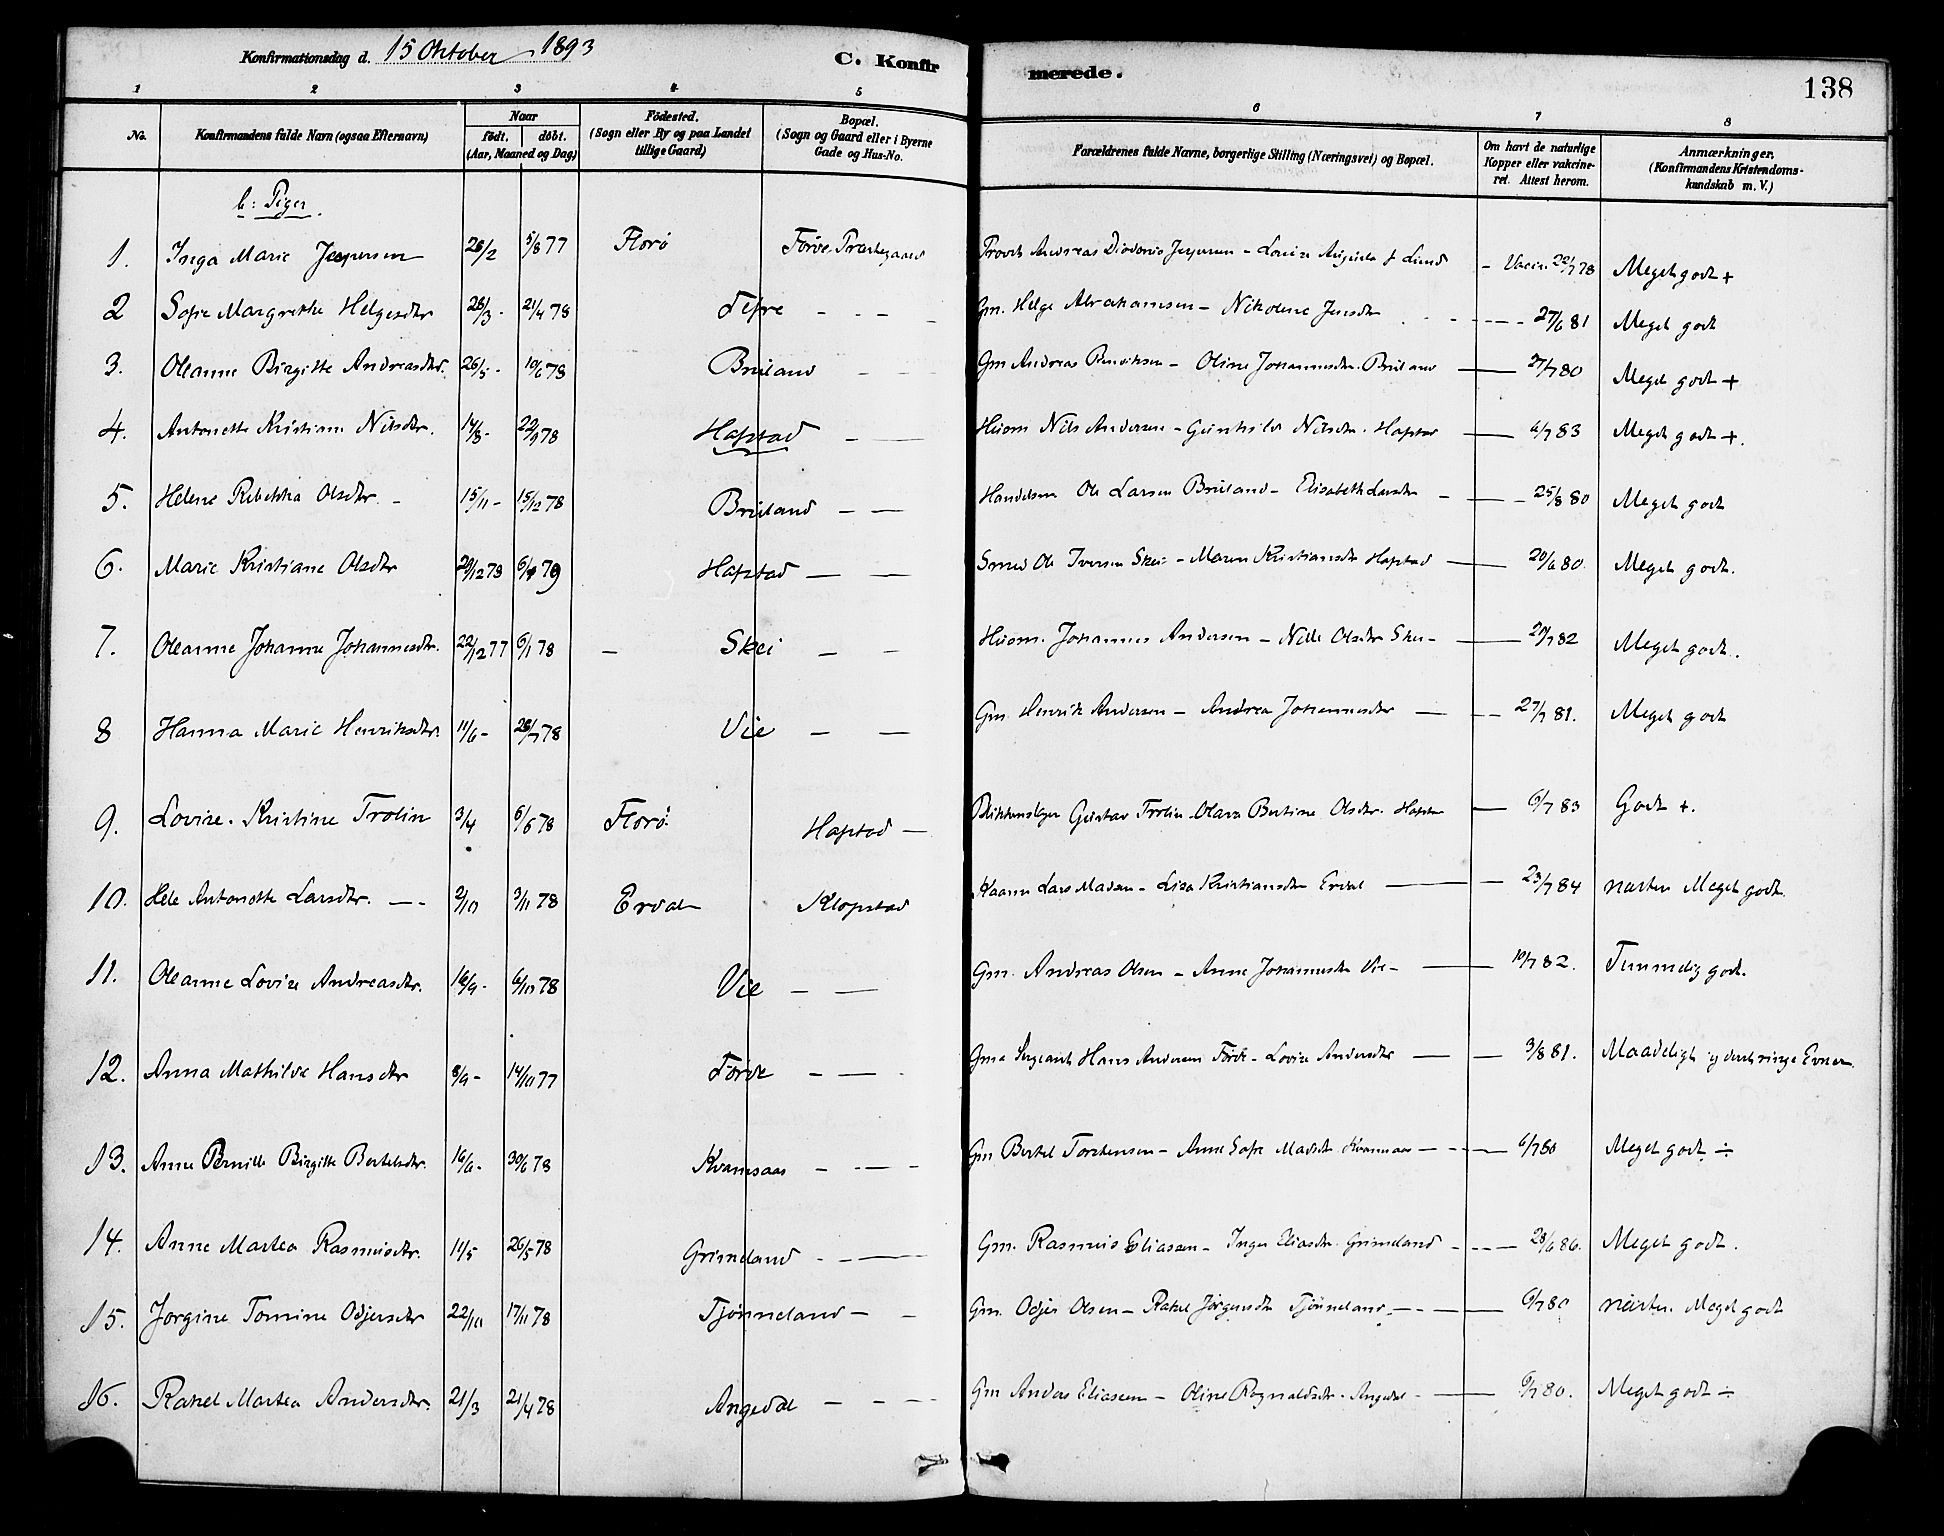 Konfirmationsdag d. 15 Oktober 1893
C. Konfirmerede.
138
1 2 3 4 5 6 7 8
No.
Konfirmandens fulde Navn (ogsaa Efternavn)
Naar
født. døbt.
(Aar, Maaned og Dag)
Fødested.
(Sogn eller By og paa Landet
tillige Gaard)
Bopæl.
(Sogn og Gaard eller i Byerne
Gade og Hus-No.
Forældrenes fulde Navne, borgerlige Stilling (Næringsvei) og Bopæl.
Om havt de naturlige
Kopper eller vakcine-
ret. Attest herom.
Anmærkninger.
(Konfirmandens Kristendoms-
kundskab m. V.)
b: Piger.
1. Inga Marie Jespersen 28/2 5/8 77 Florø Førde Præstegaard Provst Andreas Jespersen – Lovise Augusta f Lund – Vacin. 22/7 78 Meget godt +
2 Sofie Margrethe Helgesdtr 28/3 - 21/4 78 Tefre – – – Gm. Helge Abrahamsen – Nikoline Jensdtr – – – 27/6 81 Meget godt
3. Oleanne Birgitte Andreasdtr. 26/5 - 10/6 78 Bruland – – Gm Andreas – Oline Johannesdtr. Bruland — 27/7 80 Meget godt +
4. Antonette Kristiane Nilsdtr. 14/8 - 22/9 78 Hafstad – — Huusm Nils Andersen – Gunhild Nilsdtr. Hafstad — 6/7 83 Meget godt +.
5. Helene Rebekka Olsdtr. – 15/11 - 15/12 78 Bruland – — Handelsm Ole Larsen Bruland – Elisabeth Larsdtr – — 25/8 80 Meget godt
6. Marie Kristiane Olsdtr 29/12 78 6/1 79 Hafstad — — Smed Ole Iversen Skei – Maren Kristiansdtr Hafstad — 20/6 80. Meget godt.
7. Oleanne Johanne Johannesdtr. 22/12 77 6/1 78 – Skei – – Huusm. Johannes Andersen – Nille Olsdtr Skei – — 20/7 82 Meget godt.
8 Hanna Marie Henriksdtr. 11/6 - 28/7 78 Vie – — Gm. Henrik Andersen – Andrea Johannesdtr — – 27/7 81. Meget godt
9. Lovise. Kristine Trolin 3/4 6/6 78 Florø. Hafstad — Blikkenslager Gustav Trolin – Olava Bertine Olsdtr. Hafstad — 6/7 83 Godt +.
10. Antonette Larsdtr. — – 2/10 3/11 78 Erval Klopstad Lars Madsen – Lisa Kristiansdtr Erval — – 23/7 84 næsten Meget godt.
11. Oleanne Lovise Andreasdtr. 16/9 - 6/10 78 Vie – — Gm. Andreas Olsen – Anne Johannesdtr Vie – — 10/7 82. Temmelig godt.
12. Anna Mathilde Hansdtr 8/9 - 14/10 77 Førde – — . Sergeant Hans Andersen Førde – Lovise Andersdtr — — 3/8 81. Maadeligt ringe Evner.
13. Anne Pernille Birgitte Bertelsdtr. 16/6 - 30/6 78 Kvamsaas – – — – Gm Bertel Torstensen – Anne Sofie Madsdtr Kvamsaas — – — 6/7 80 Meget godt ÷
14. Anne Martea Rasmusdtr. 11/5 26/5 78 Grimeland – – — Gm. Rasmus Eliassen – Inger Eliasdtr. Grimeland – – — 28/6 86. Meget godt.
15. Jørgine Tomine Odjersdtr 22/10 17/11 78 Tjønneland – – Gm. Odjer Olsen – Rakel Jørgensdtr Tjønneland – – — 6/7 80 næsten Meget godt
16. Rakel Martea Andersdtr. 21/3 21/4 78 Angedal – – — Gm Anders Eliassen – Oline Ragnaldsdtr. Angedal – — 6/7 80. Meget godt ÷